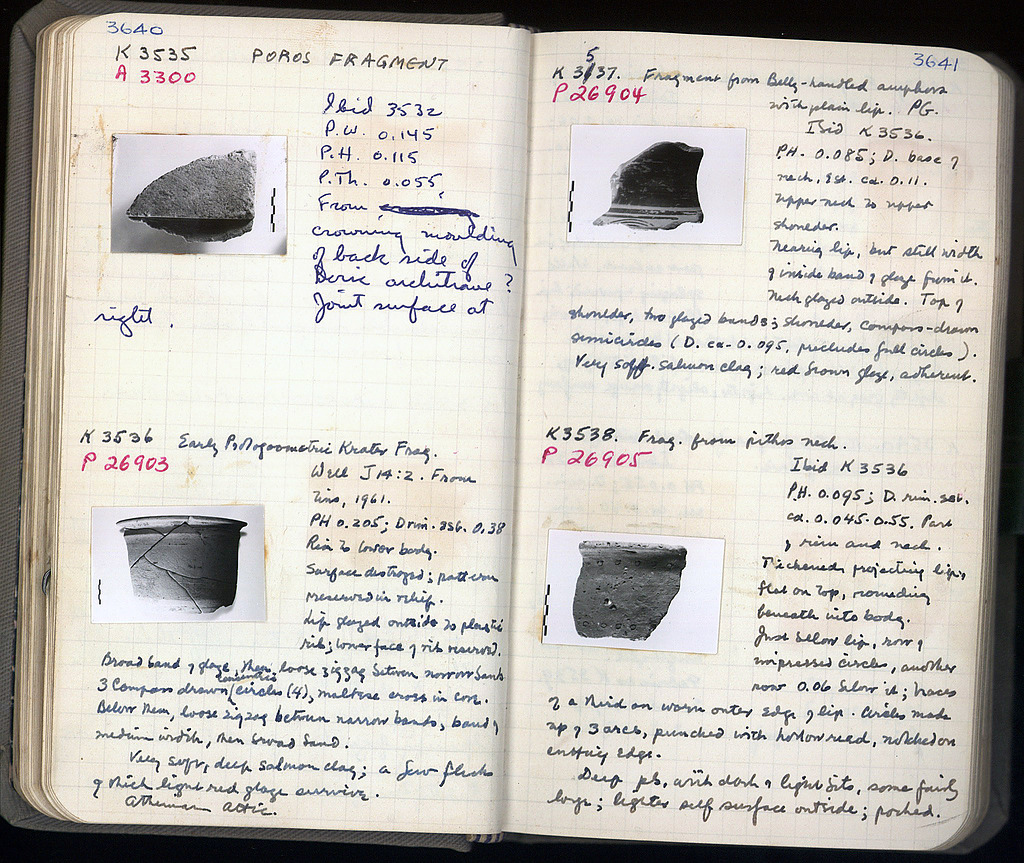 3640
K 3535 POROS FRAGMENT
A 3300
Ibid 3532
P.W. 0.145
P.H. 0.115
P.Th. 0.055
From
crowning moulding
of back side of
Doric architrave ?
Joint surface at
right.
K 3536 Early Protogeometric Krater Frag.
P 26903
Well J 14:2. From
tins, 1961.
PH 0.205; D rim. est. 0.38
Rim to lower body.
Surface destroyed; pattern
preserved in relief.
Lip glazed outside to plastic
rib; lower face of rib reserved.
Broad band of glaze, then loose zigzag between narrow bands
3 Compass drawn concentric circles (4), maltese cross in core.
Below them, loose zigzag between narrow bands, band of
medium width, then broad band.
Very soft, deep salmon clay; a few flecks
of thick light red glaze survive.
Athenian Attic.
3641
5
K 3137. Fragment from Belly-handled amphora
P 26904
with plain lip. PG.
Ibid K 3536.
PH. 0.085; D. base of
neck, est. ca. 0.11.
Upper neck to upper
shoulder.
Nearing lip, but still width
of inside band of glaze from it.
Neck glazed outside. Top of
shoulder, two glazed bands; shoulder, compass-drawn
semicircles (D. ca. 0.095, precludes full circles).
Very soft salmon clay; red brown glaze, adherent.
K3538. Frag. from pithos neck.
P 26905
Ibid K 3536
P.H. 0.095; D. rim. est.
ca. 0.045-0.55. Part
of rim and neck.
Thickened projecting lip,
flat on top, rounding
beneath into body.
Just below lip, row of
impressed circles, another
row 0.06 below it; traces
of a third on worn outer edge of lip. Circles made
up of 3 arcs, punched with hollow reed, notched on
cutting edge.
Deep pb, with dark & light bits, some fairly
large; lighter self surface outside; pocked.